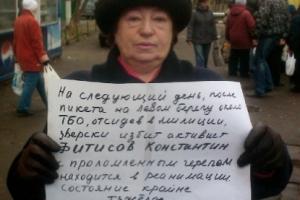 На следующий день, после
пикета на левом берегу
ТБО, отсидев в милиции,
зверски избит активист
Фитисов Константин
с проломленным черепом
находится в реанимации
состояние крайне
тяжёлое